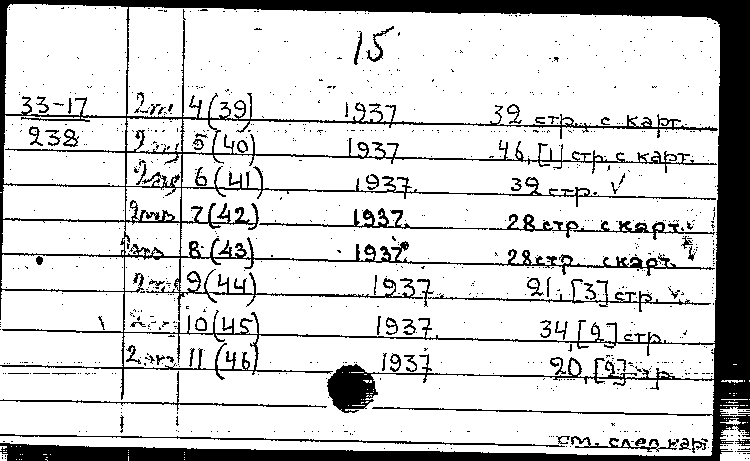 15
33-17 2 экз 4 (39) 1937 32 стр., с карт.
238 2 экз 5 (40) 1937 46, [1] стр, с карт.
2 экз 6 (41) 1937. 32 стр. √
2 экз 7 (42) 1937. 28 стр. с карт. √
2 экз 8 (43) 1937. 28 стр. с карт. √
2 экз 9 (44) 1937. 21, [3] стр. √
2 экз 10 (45) 1937. 34, [2] стр.
2 экз 11 (46) 1937 20, [2] стр.
см. след карт